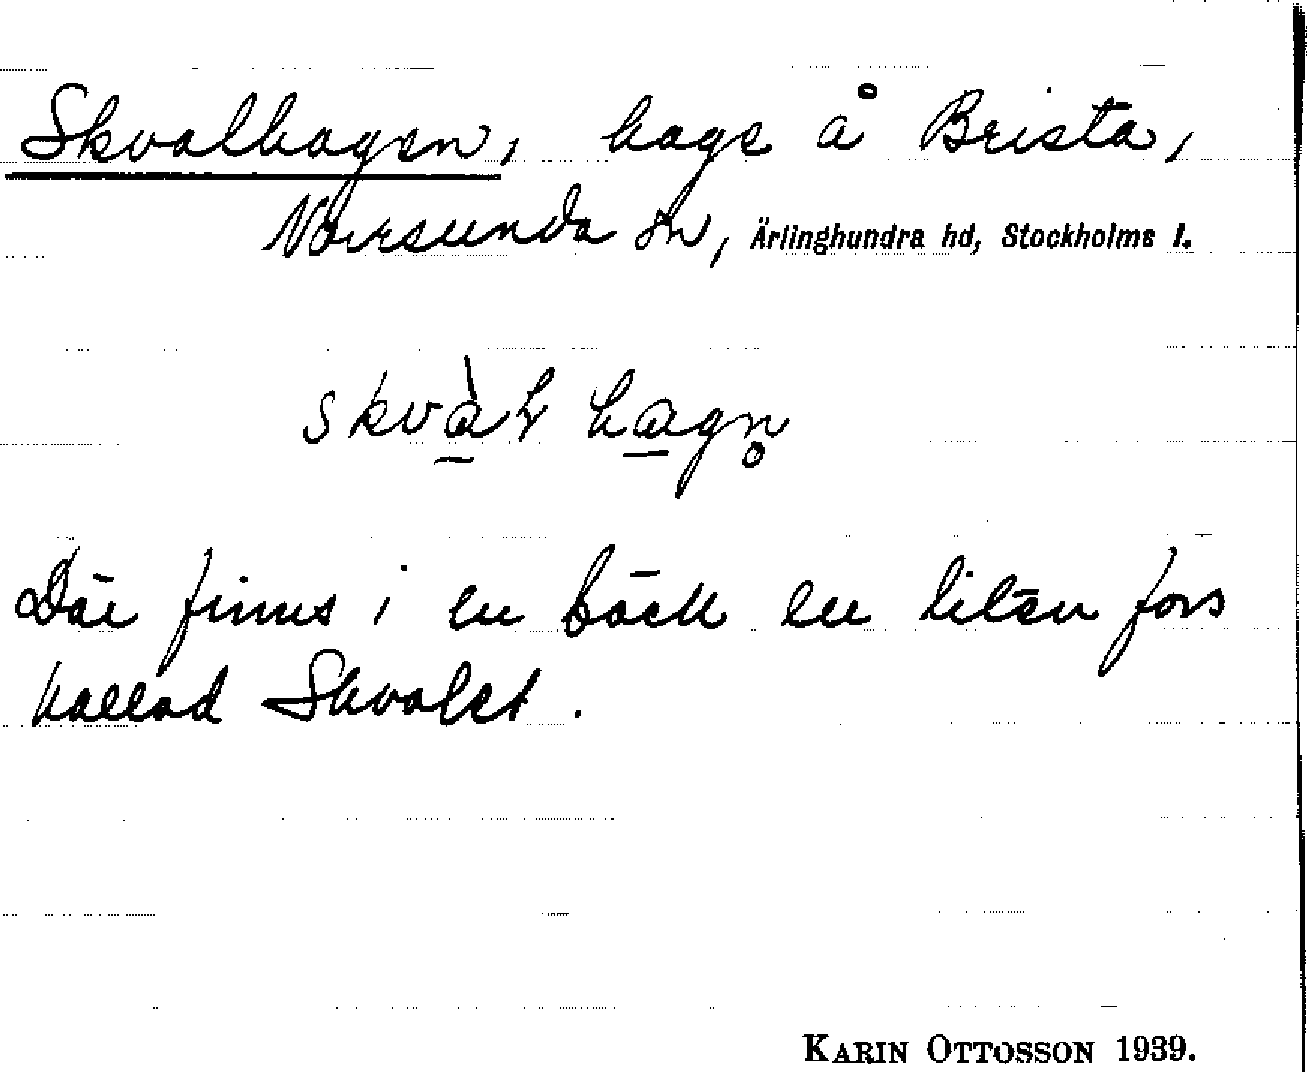 Skvalhagen, hage å Brista,
Norrsunda sn, Ärlinghundra hd, Stockholms l.
skvàl hagn̥
Där finns i en bäck en liten fors
kallad Skvalet.
KARIN OTTOSSON 1939.